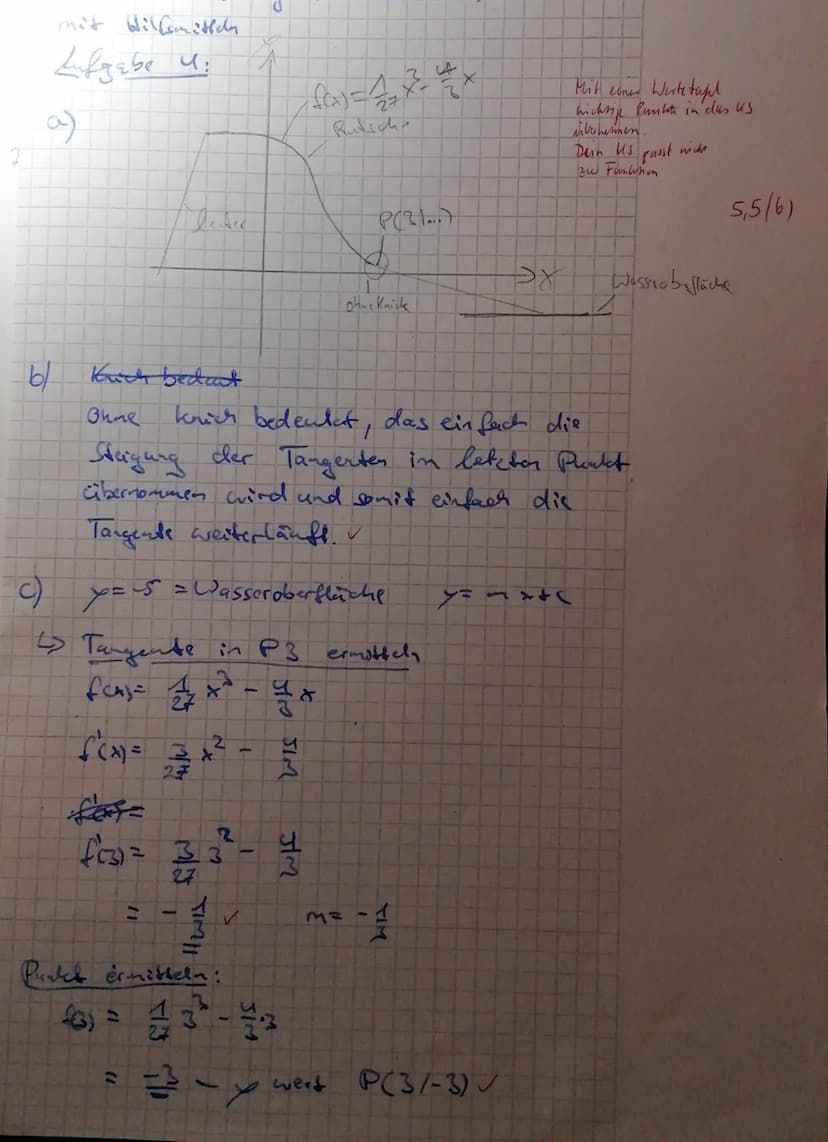 mit Hilfsmitteln
Aufgabe 4:
a)
f(x)= 1/27 x³ - 4/3 x
Rutsche
Mit einer Wertetafel
wichtige Punkte in das KS
übernehmen.
Dein KS passt nicht
zu Funktion
5,5/6)
2
Leiter
P(3/...)
X
ohne Knick
Wasseroberfläche
b) Knick bedeut
Ohne Knick bedeutet, das einfach die
Steigung der Tangenten in letzten Punkt
übernommen wird und somit einfach die
Tangente weiterläuft. ✓
c) y = -5 = Wasseroberfläche y = mx+c
↳ Tangente in P3 ermitteln
f(x)= 1/27 x³ - 4/3 x
f'(x)= 3/27 x² - 4/3
f'(x)=
f'(3)= 3/27 3² - 4/3
= - 1/3 ✓ m= - 1/3
Punkt ermitteln:
f(3) = 1/27 3³ - 4/3 · 3
= -3 - y wert P(3/-3) ✓